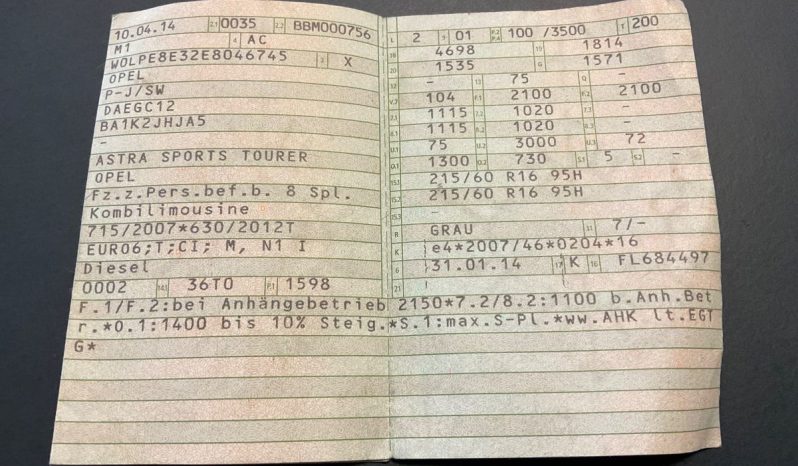 10.04.14 2.1 0035 2.2 BBM000756
M1 4 AC
W0LPE8E32E8046745 3 X
OPEL
P-J/SW
DAEGC12
BA1K2JHJA5
-
ASTRA SPORTS TOURER
OPEL
Fz.z.Pers.bef.b. 8 Spl.
Kombilimousine
715/2007*630/2012T
EURO6;T;CI; M, N1 I
Diesel
0002 14.1 36T0 P.1 1598
L 2 9 01 P.2 P.4 100 /3500 T 200
18 4698 19 1814
20 1535 G 1571
12 - 13 75 Q -
V.7 104 F.1 2100 F.2 2100
7.1 1115 7.2 1020 7.3 -
8.1 1115 8.2 1020 8.3 -
U.1 75 U.2 3000 U.3 72
O.1 1300 O.2 730 S.1 5 S.2 -
15.1 215/60 R16 95H
15.2 215/60 R16 95H
15.3 -
R GRAU 11 7/-
K e4*2007/46*0204*16
6 31.01.14 17 K 16 FL684497
21
F.1/F.2:bei Anhängebetrieb 2150*7.2/8.2:1100 b.Anh.Bet
r.*O.1:1400 bis 10% Steig.*S.1:max.S-Pl.*ww.AHK lt.EGT
G*